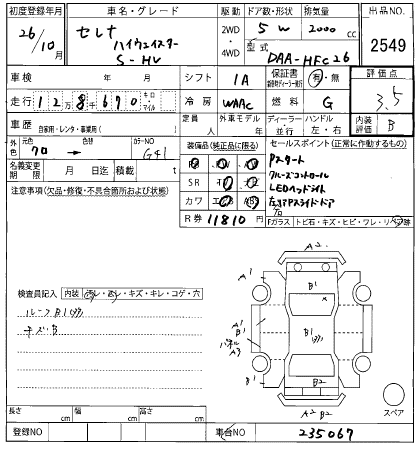 初度登録年月 車名・グレード 駆動 ドア数・形状 排気量 出品NO.
26/10月 セレナ ハイウェイスター S-HV 2WD・4WD 5 W 2000 cc 2549
型式 DAA-HFC26
車検 年 月 シフト IA 保証書 有・無 評価点
走行 12万8千670 キロ・マイル 冷房 WAAC 燃料 G 3.5
車歴 自家用・レンタ・事業用( ) 定員 人 外車モデル 年 ディーラー・並行 ハンドル 左・右 内装 B
外色 元色 クロ → 色替 カラーNO G41 装備品(純正品に限る) セールスポイント(正常に作動するもの)
名義変更期限 月 日迄 積載 t
注意事項(欠品・修復・不具合箇所および状態)
SR
カワ
R券 11810 円
Pスタート
クルーズコントロール
LEDヘッドライト
左右Pスライドドア
Fガラス トビ石・キズ・ヒビ・ワレ・リペア跡
検査員記入 内装 汚レ・スレ・キズ・キレ・コゲ・穴
ルーフB1
キズB
A2
A1
B1
B1
A1
B1
B1
B2
A2 B2
スペア
長さ cm 幅 cm 高さ cm
登録NO 車台NO 235067